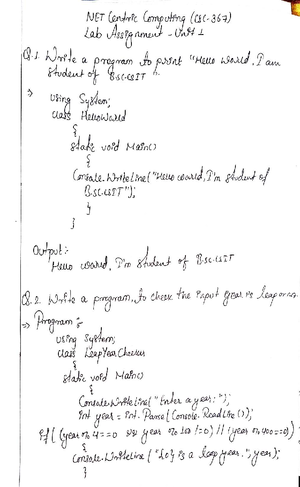 NET Centric Computing (CSC-367)
Lab Assignment - Unit 1
Q.1. Write a program to print "Hello World, I am
student of BSC.CSIT".
⇒ using System;
class HelloWorld
{
static void Main()
{
Console.WriteLine("Hello world, I'm student of
BSC.CSIT");
}
}
Output:-
Hello world, I'm student of BSC.CSIT
Q.2. Write a program, to check the input year is leap or not
⇒ Program:
using System;
class LeapYearChecker
{
static void Main()
{
Console.WriteLine("Enter a year:");
int year = int.Parse(Console.ReadLine());
if ((year % 4 == 0 && year % 100 != 0) || (year % 400 == 0))
{
Console.WriteLine("{0} is a leap year.", year);
}